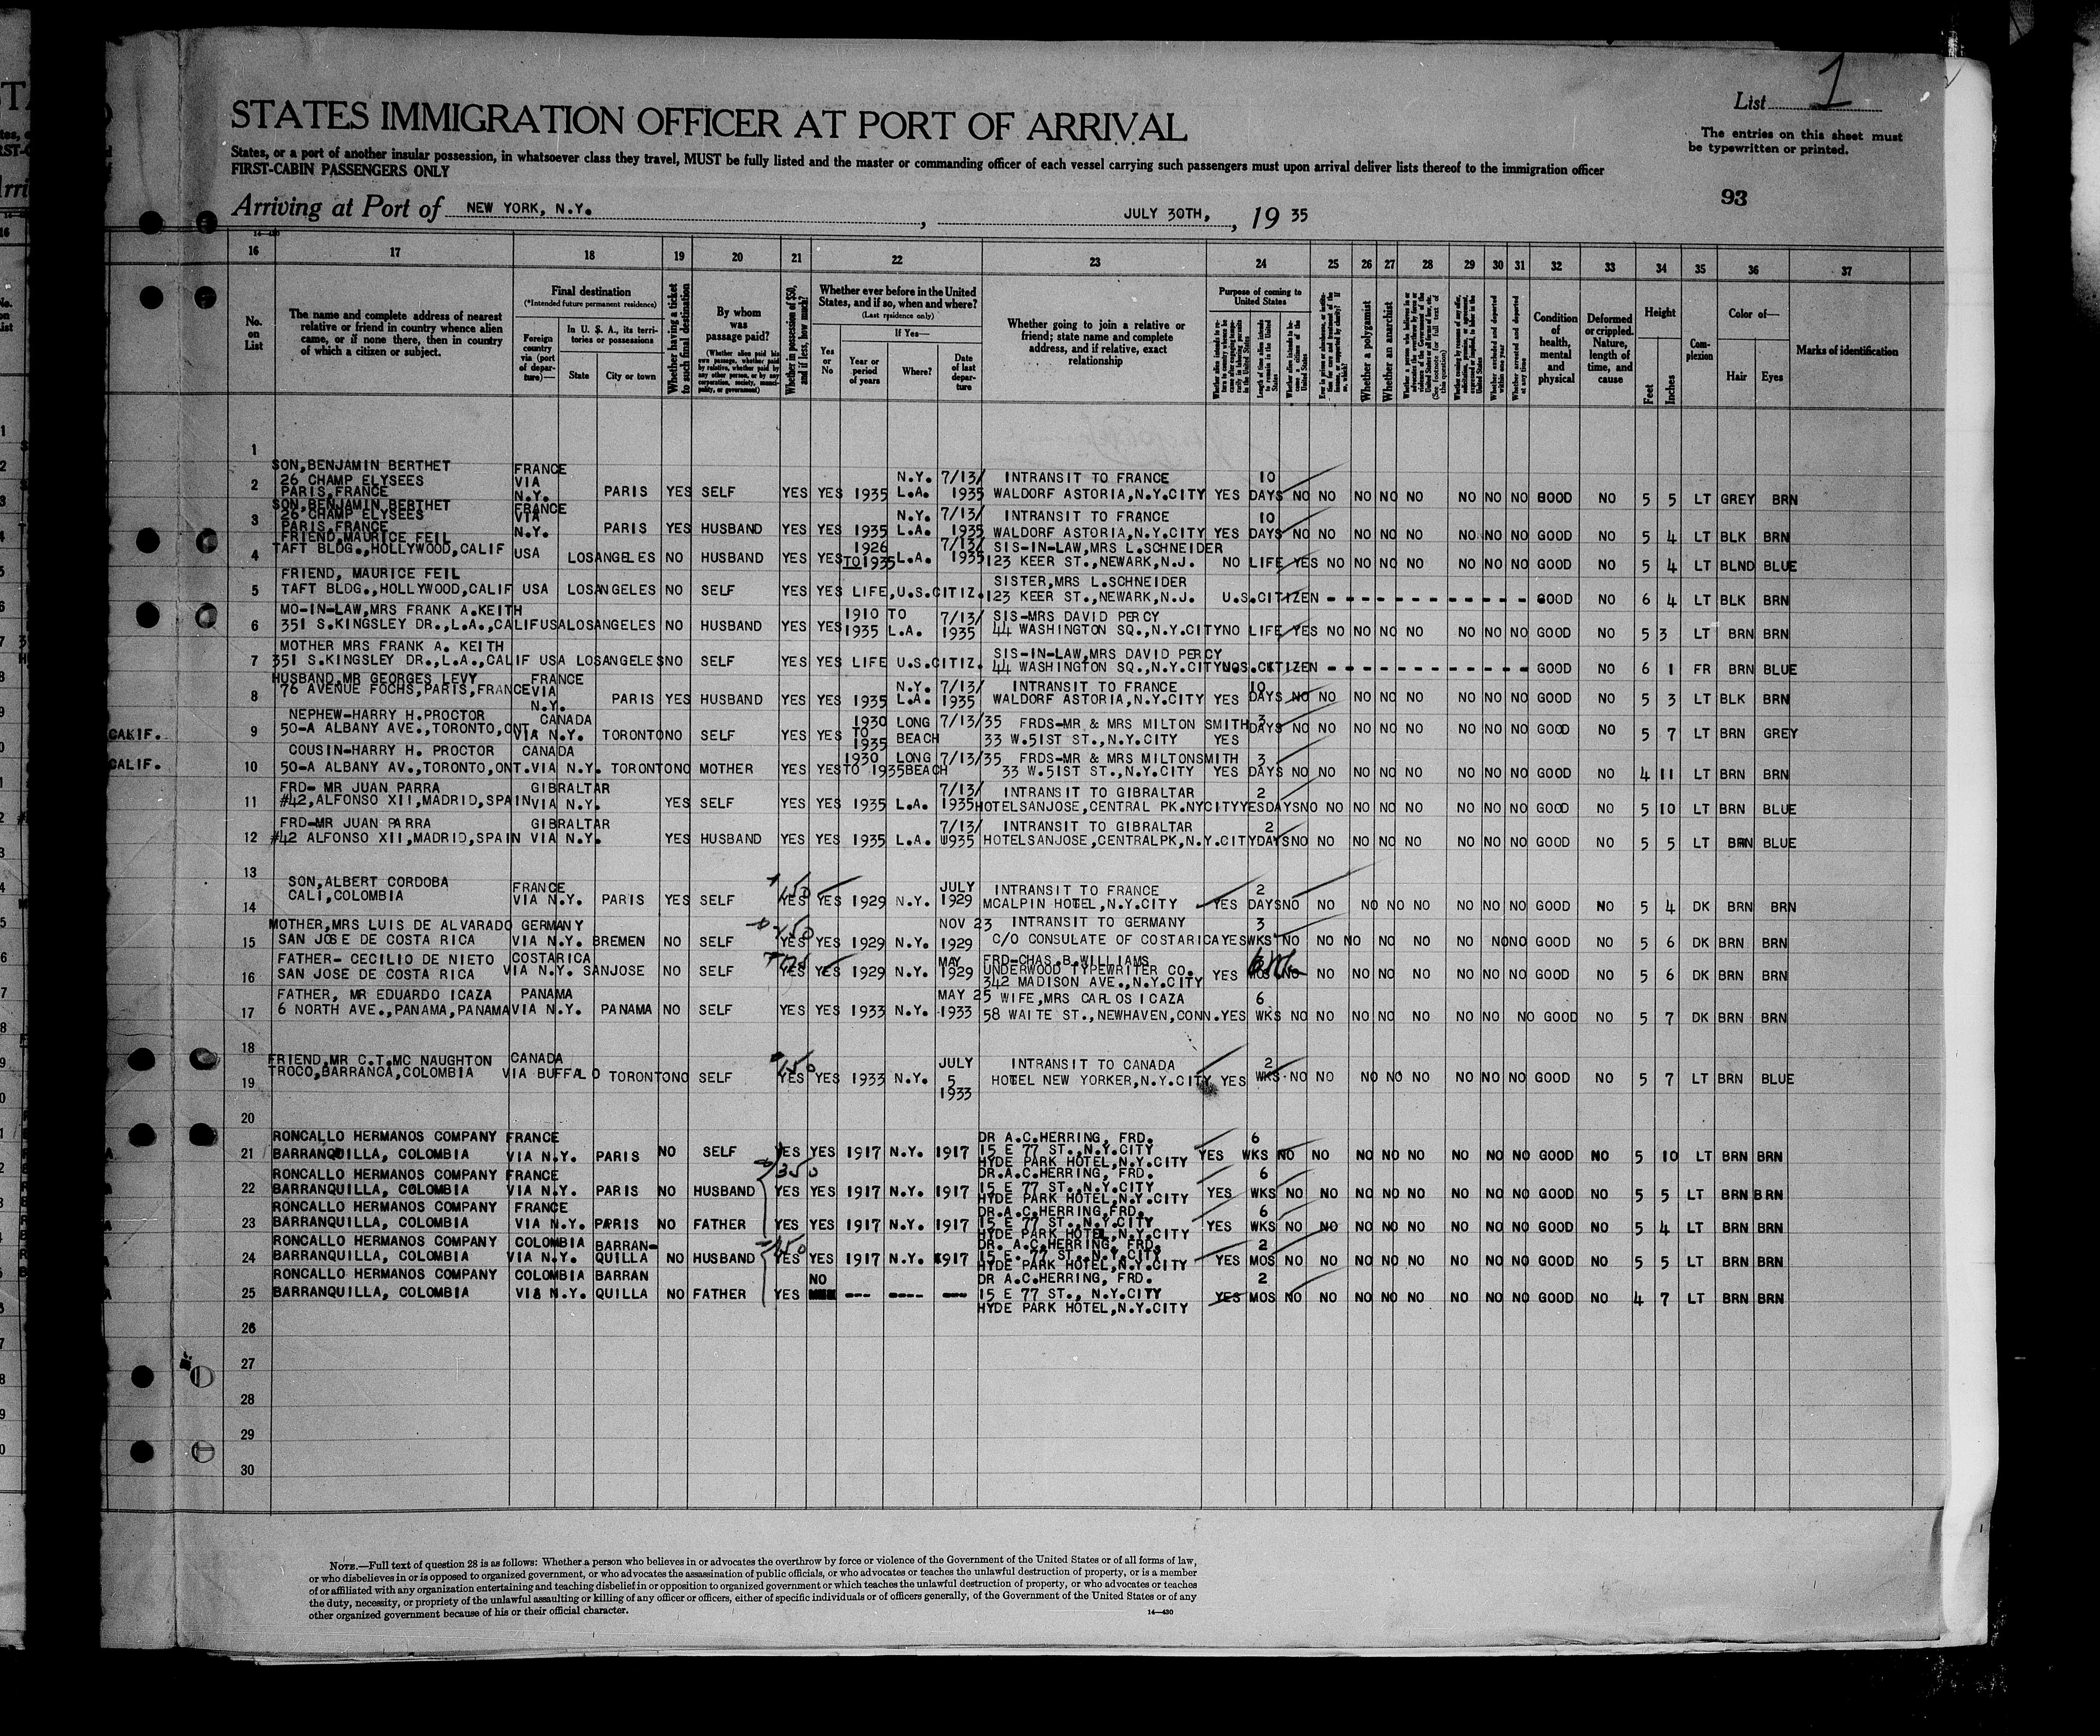 List 1
STATES IMMIGRATION OFFICER AT PORT OF ARRIVAL
The entries on this sheet must be typewritten or printed.
States, or a port of another insular possession, in whatsoever class they travel, MUST be fully listed and the master or commanding officer of each vessel carrying such passengers must upon arrival deliver lists thereof to the immigration officer
FIRST-CABIN PASSENGERS ONLY
93
Arriving at Port of NEW YORK, N.Y. , JULY 30TH, , 19 35
16 17 18 19 20 21 22 23 24 25 26 27 28 29 30 31 32 33 34 35 36 37
No. on List
The name and complete address of nearest relative or friend in country whence alien came, or if none there, then in country of which a citizen or subject.
Final destination
(*Intended future permanent residence)
Foreign country via (port of departure)—
In U. S. A., its territories or possessions
State
City or town
Whether having a ticket to such final destination
By whom was passage paid?
(Whether alien paid his own passage, whether paid by relative, whether paid by any other person, or by any corporation, society, municipality, or government)
Whether in possession of $50, and if less, how much?
Whether ever before in the United States, and if so, when and where?
(Last residence only)
Yes or No
If Yes—
Year or period of years
Where?
Date of last departure
Whether going to join a relative or friend; state name and complete address, and if relative, exact relationship
Purpose of coming to United States
Whether a polygamist
Whether an anarchist
Condition of health, mental and physical
Deformed or crippled. Nature, length of time, and cause
Height
Feet
Inches
Complexion
Color of—
Hair
Eyes
Marks of identification
1
2 SON,BENJAMIN BERTHET 26 CHAMP ELYSEES PARIS,FRANCE FRANCE VIA N.Y. PARIS YES SELF YES YES 1935 N.Y. L.A. 7/13/ 1935 INTRANSIT TO FRANCE WALDORF ASTORIA,N.Y.CITY YES 10 DAYS NO NO NO NO NO NO NO NO GOOD NO 5 5 LT GREY BRN
3 SON,BENJAMIN BERTHET 26 CHAMP ELYSEES PARIS,FRANCE FRANCE VIA N.Y. PARIS YES HUSBAND YES YES 1935 N.Y. L.A. 7/13/ 1935 INTRANSIT TO FRANCE WALDORF ASTORIA,N.Y.CITY YES 10 DAYS NO NO NO NO NO NO NO NO GOOD NO 5 4 LT BLK BRN
4 FRIEND,MAURICE FEIL TAFT BLDG.,HOLLYWOOD,CALIF USA LOSANGELES NO HUSBAND YES YES 1926 TO 1935 L.A. 7/13/ 1935 SIS-IN-LAW,MRS L.SCHNEIDER 123 KEER ST.,NEWARK,N.J. NO LIFE YES NO NO NO NO NO NO NO GOOD NO 5 4 LT BLND BLUE
5 FRIEND, MAURICE FEIL TAFT BLDG.,HOLLYWOOD,CALIF USA LOSANGELES NO SELF YES YES LIFE,U.S.CITIZ. SISTER,MRS L.SCHNEIDER 123 KEER ST.,NEWARK,N.J. U.S.CITIZEN - - - - - - - - - - - - GOOD NO 6 4 LT BLK BRN
6 MO-IN-LAW,MRS FRANK A.KEITH 351 S.KINGSLEY DR.,L.A.,CALIF USA LOSANGELES NO HUSBAND YES YES 1910 TO 1935 L.A. 7/13/ 1935 SIS-MRS DAVID PERCY 44 WASHINGTON SQ.,N.Y.CITY NO LIFE YES NO NO NO NO NO NO NO GOOD NO 5 3 LT BRN BRN
7 MOTHER MRS FRANK A. KEITH 351 S.KINGSLEY DR.,L.A.,CALIF USA LOSANGELES NO SELF YES YES LIFE U.S.CITIZ. SIS-IN-LAW,MRS DAVID PERCY 44 WASHINGTON SQ.,N.Y.CITY U.S.CITIZEN - - - - - - - - - - - - GOOD NO 6 1 FR BRN BLUE
8 HUSBAND,MR GEORGES LEVY 76 AVENUE FOCHS,PARIS,FRANCE FRANCE VIA N.Y. PARIS YES HUSBAND YES YES 1935 N.Y. L.A. 7/13/ 1935 INTRANSIT TO FRANCE WALDORF ASTORIA,N.Y.CITY YES 10 DAYS NO NO NO NO NO NO NO NO GOOD NO 5 3 LT BLK BRN
CALIF. 9 NEPHEW-HARRY H.PROCTOR 50-A ALBANY AVE.,TORONTO,ONT CANADA VIA N.Y. TORONTO NO SELF YES YES 1930 TO 1935 LONG BEACH 7/13/35 FRDS-MR & MRS MILTON SMITH 33 W.51ST ST.,N.Y.CITY YES 3 DAYS NO NO NO NO NO NO NO NO GOOD NO 5 7 LT BRN GREY
CALIF. 10 COUSIN-HARRY H. PROCTOR 50-A ALBANY AV.,TORONTO,ONT. CANADA VIA N.Y. TORONTO NO MOTHER YES YES 1930 TO 1935 LONG BEACH 7/13/35 FRDS-MR & MRS MILTONSMITH 33 W.51ST ST.,N.Y.CITY YES 3 DAYS NO NO NO NO NO NO NO NO GOOD NO 4 11 LT BRN BRN
11 FRD- MR JUAN PARRA #42,ALFONSO XII,MADRID,SPAIN GIBRALTAR VIA N.Y. YES SELF YES YES 1935 L.A. 7/13/ 1935 INTRANSIT TO GIBRALTAR HOTELSANJOSE,CENTRAL PK.NYCITY YES 2 DAYS NO NO NO NO NO NO NO NO GOOD NO 5 10 LT BRN BLUE
12 FRD-MR JUAN PARRA #42 ALFONSO XII,MADRID,SPAIN GIBRALTAR VIA N.Y. YES HUSBAND YES YES 1935 L.A. 7/13/ 1935 INTRANSIT TO GIBRALTAR HOTELSANJOSE,CENTRALPK,N.Y.CITY 2 DAYS NO NO NO NO NO NO NO NO GOOD NO 5 5 LT BRN BLUE
13
14 SON,ALBERT CORDOBA CALI,COLOMBIA FRANCE VIA N.Y. PARIS YES SELF YES 150 YES 1929 N.Y. JULY 1929 INTRANSIT TO FRANCE MCALPIN HOTEL,N.Y.CITY YES 2 DAYS NO NO NO NO NO NO NO NO GOOD NO 5 4 DK BRN BRN
15 MOTHER,MRS LUIS DE ALVARADO SAN JOSE DE COSTA RICA GERMANY VIA N.Y. BREMEN NO SELF YES YES 1929 N.Y. NOV 23 1929 INTRANSIT TO GERMANY C/O CONSULATE OF COSTARICA YES 3 WKS NO NO NO NO NO NO NO NO GOOD NO 5 6 DK BRN BRN
16 FATHER- CECILIO DE NIETO SAN JOSE DE COSTA RICA COSTARICA VIA N.Y. SANJOSE NO SELF YES YES 1929 N.Y. MAY 1929 FRD-CHAS.B.WILLIAMS UNDERWOOD TYPEWRITER CO. 342 MADISON AVE.,N.Y.CITY YES MOS NO NO NO NO NO NO NO NO GOOD NO 5 6 DK BRN BRN
17 FATHER, MR EDUARDO ICAZA 6 NORTH AVE.,PANAMA,PANAMA PANAMA VIA N.Y. PANAMA NO SELF YES YES 1933 N.Y. MAY 25 1933 WIFE,MRS CARLOS ICAZA 58 WAITE ST.,NEWHAVEN,CONN. YES 6 WKS NO NO NO NO NO NO NO NO GOOD NO 5 7 DK BRN BRN
18
19 FRIEND,MR C.T.MC NAUGHTON TROCO,BARRANCA,COLOMBIA CANADA VIA BUFFALO TORONTO NO SELF YES 150 YES 1933 N.Y. JULY 5 1933 INTRANSIT TO CANADA HOTEL NEW YORKER,N.Y.CITY YES 2 WKS NO NO NO NO NO NO NO NO GOOD NO 5 7 LT BRN BLUE
20
21 RONCALLO HERMANOS COMPANY BARRANQUILLA, COLOMBIA FRANCE VIA N.Y. PARIS NO SELF YES YES 1917 N.Y. 1917 DR A.C.HERRING, FRD. 15 E 77 ST.,N.Y.CITY HYDE PARK HOTEL,N.Y.CITY YES 6 WKS NO NO NO NO NO NO NO NO GOOD NO 5 10 LT BRN BRN
22 RONCALLO HERMANOS COMPANY BARRANQUILLA, COLOMBIA FRANCE VIA N.Y. PARIS NO HUSBAND 350 YES YES 1917 N.Y. 1917 DR.A.C.HERRING, FRD. 15 E 77 ST.,N.Y.CITY HYDE PARK HOTEL,N.Y.CITY YES 6 WKS NO NO NO NO NO NO NO NO GOOD NO 5 5 LT BRN BRN
23 RONCALLO HERMANOS COMPANY BARRANQUILLA, COLOMBIA FRANCE VIA N.Y. PARIS NO FATHER YES YES 1917 N.Y. 1917 DR.A.C.HERRING,FRD. 15 E 77 ST.,N.Y.CITY HYDE PARK HOTEL,N.Y.CITY YES 6 WKS NO NO NO NO NO NO NO NO GOOD NO 5 4 LT BRN BRN
24 RONCALLO HERMANOS COMPANY BARRANQUILLA, COLOMBIA COLOMBIA VIA N.Y. BARRAN- QUILLA NO HUSBAND YES YES 1917 N.Y. 1917 DR. A.C.HERRING, FRD. 15 E. 77 ST.,N.Y.CITY HYDE PARK HOTEL,N.Y.CITY YES 2 MOS NO NO NO NO NO NO NO NO GOOD NO 5 5 LT BRN BRN
25 RONCALLO HERMANOS COMPANY BARRANQUILLA, COLOMBIA COLOMBIA VIA N.Y. BARRAN QUILLA NO FATHER YES NO --- ---- --- DR A.C.HERRING, FRD. 15 E 77 ST., N.Y.CITY HYDE PARK HOTEL,N.Y.CITY YES 2 MOS NO NO NO NO NO NO NO NO GOOD NO 4 7 LT BRN BRN
26
27
28
29
30
NOTE.—Full text of question 28 is as follows: Whether a person who believes in or advocates the overthrow by force or violence of the Government of the United States or of all forms of law,
or who disbelieves in or is opposed to organized government, or who advocates the assassination of public officials, or who advocates or teaches the unlawful destruction of property, or is a member
of or affiliated with any organization entertaining and teaching disbelief in or opposition to organized government or which teaches the unlawful destruction of property, or who advocates or teaches
the duty, necessity, or propriety of the unlawful assaulting or killing of any officer or officers, either of specific individuals or of officers generally, of the Government of the United States or of any
other organized government because of his or their official character.
14—430